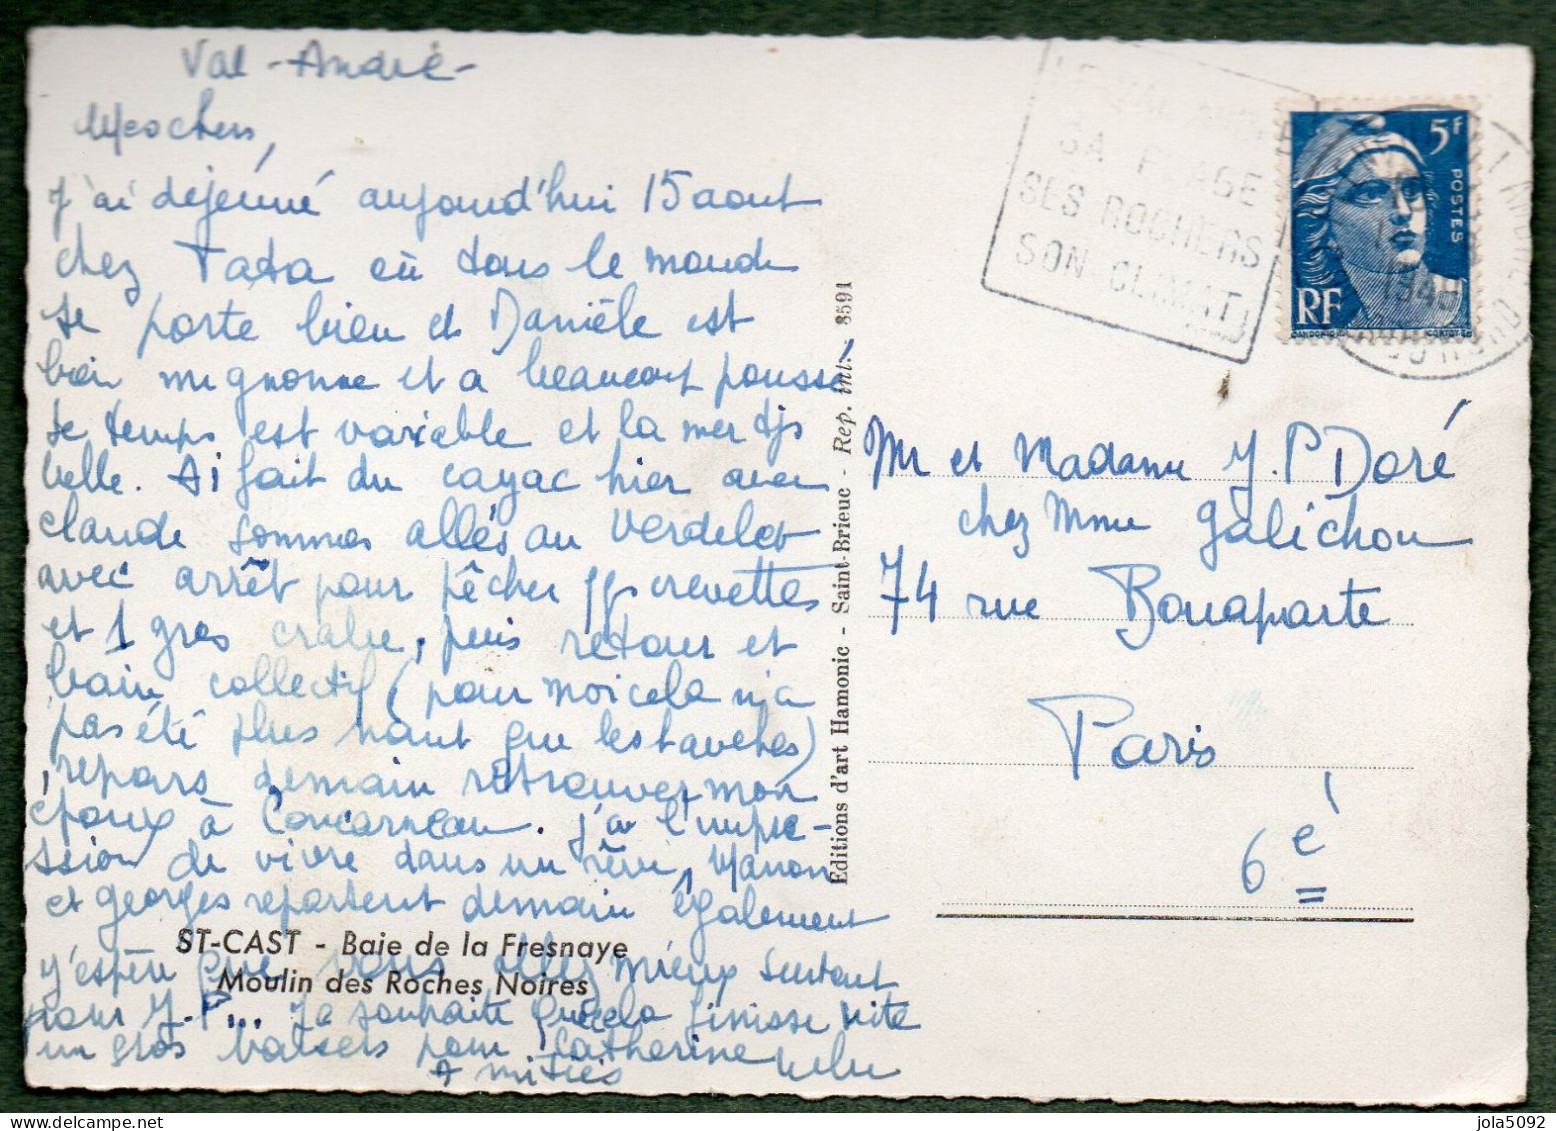 Val-André-
Mes chers,
J'ai déjeuné aujourd'hui 15 aout
chez Tata où tous le monde
se porte bien et Danièle est
bien mignonne et a beaucoup poussé
le temps est variable et la mer tjs
belle. Ai fait du cayac hier avec
claude sommes allés au Verdelet
avec arrêt pour pêcher qq crevettes
et 1 gros crabe, puis retour et
bain collectif (pour moi cela n'a
pas été plus haut que les
repars demain retrouver mon
époux à Concarneau. J'ai l'impre-
ssion de vivre dans un rêve, Manon
et georges repartent demain également
j'espère que vous allez mieux surtout
pour J-P... Je souhaite que cela finisse vite
un gros baisers pour Catherine
Amitiés Lulu
ST-CAST - Baie de la Fresnaye
Moulin des Roches Noires
Editions d'art Hamonic - Saint-Brieuc - Rep. int. - 3591
LE VAL ANDRE
SA PLAGE
SES ROCHERS
SON CLIMAT
5F
POSTES
RF
GANDON
1948
Mr et Madame J. P Doré
chez Mme Galichon
74 rue Bonaparte
Paris
6e
jola5092